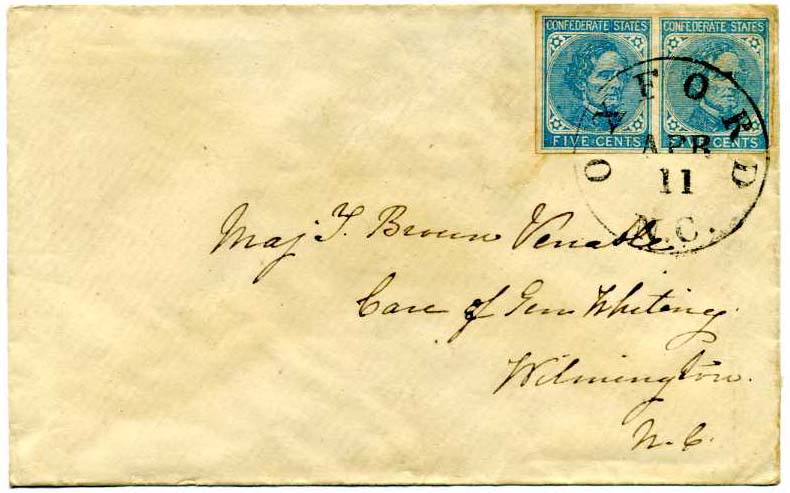 CONFEDERATE STATES CONFEDERATE STATES
FIVE CENTS CENTS
OXFORD
APR
11
N.C.
Maj T. Brown Venable
Care of Gen Whiting
Wilmington.
N.C.